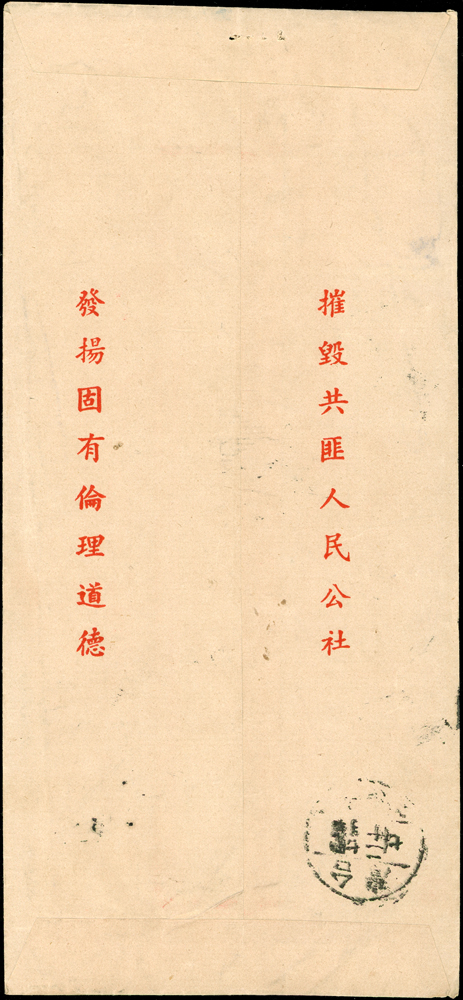 摧毀共匪人民公社
發揚固有倫理道德